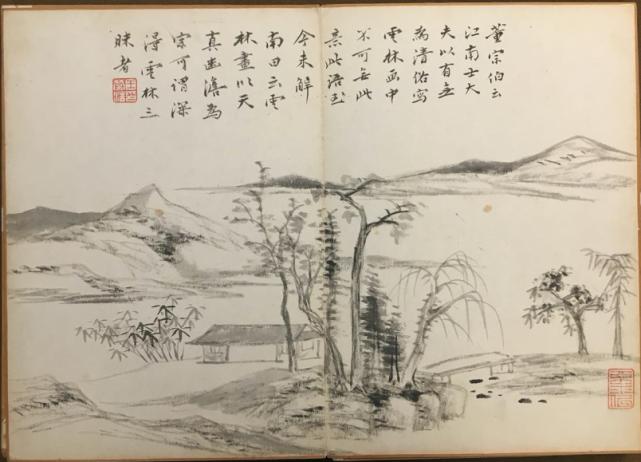 董宗伯云
江南士大
夫以有無
為清俗寫
雲林画中
不可無此
意此語至
今未解
南田云雲
林畫以天
真幽澹為
宗可謂深
淂雲林三
昧者